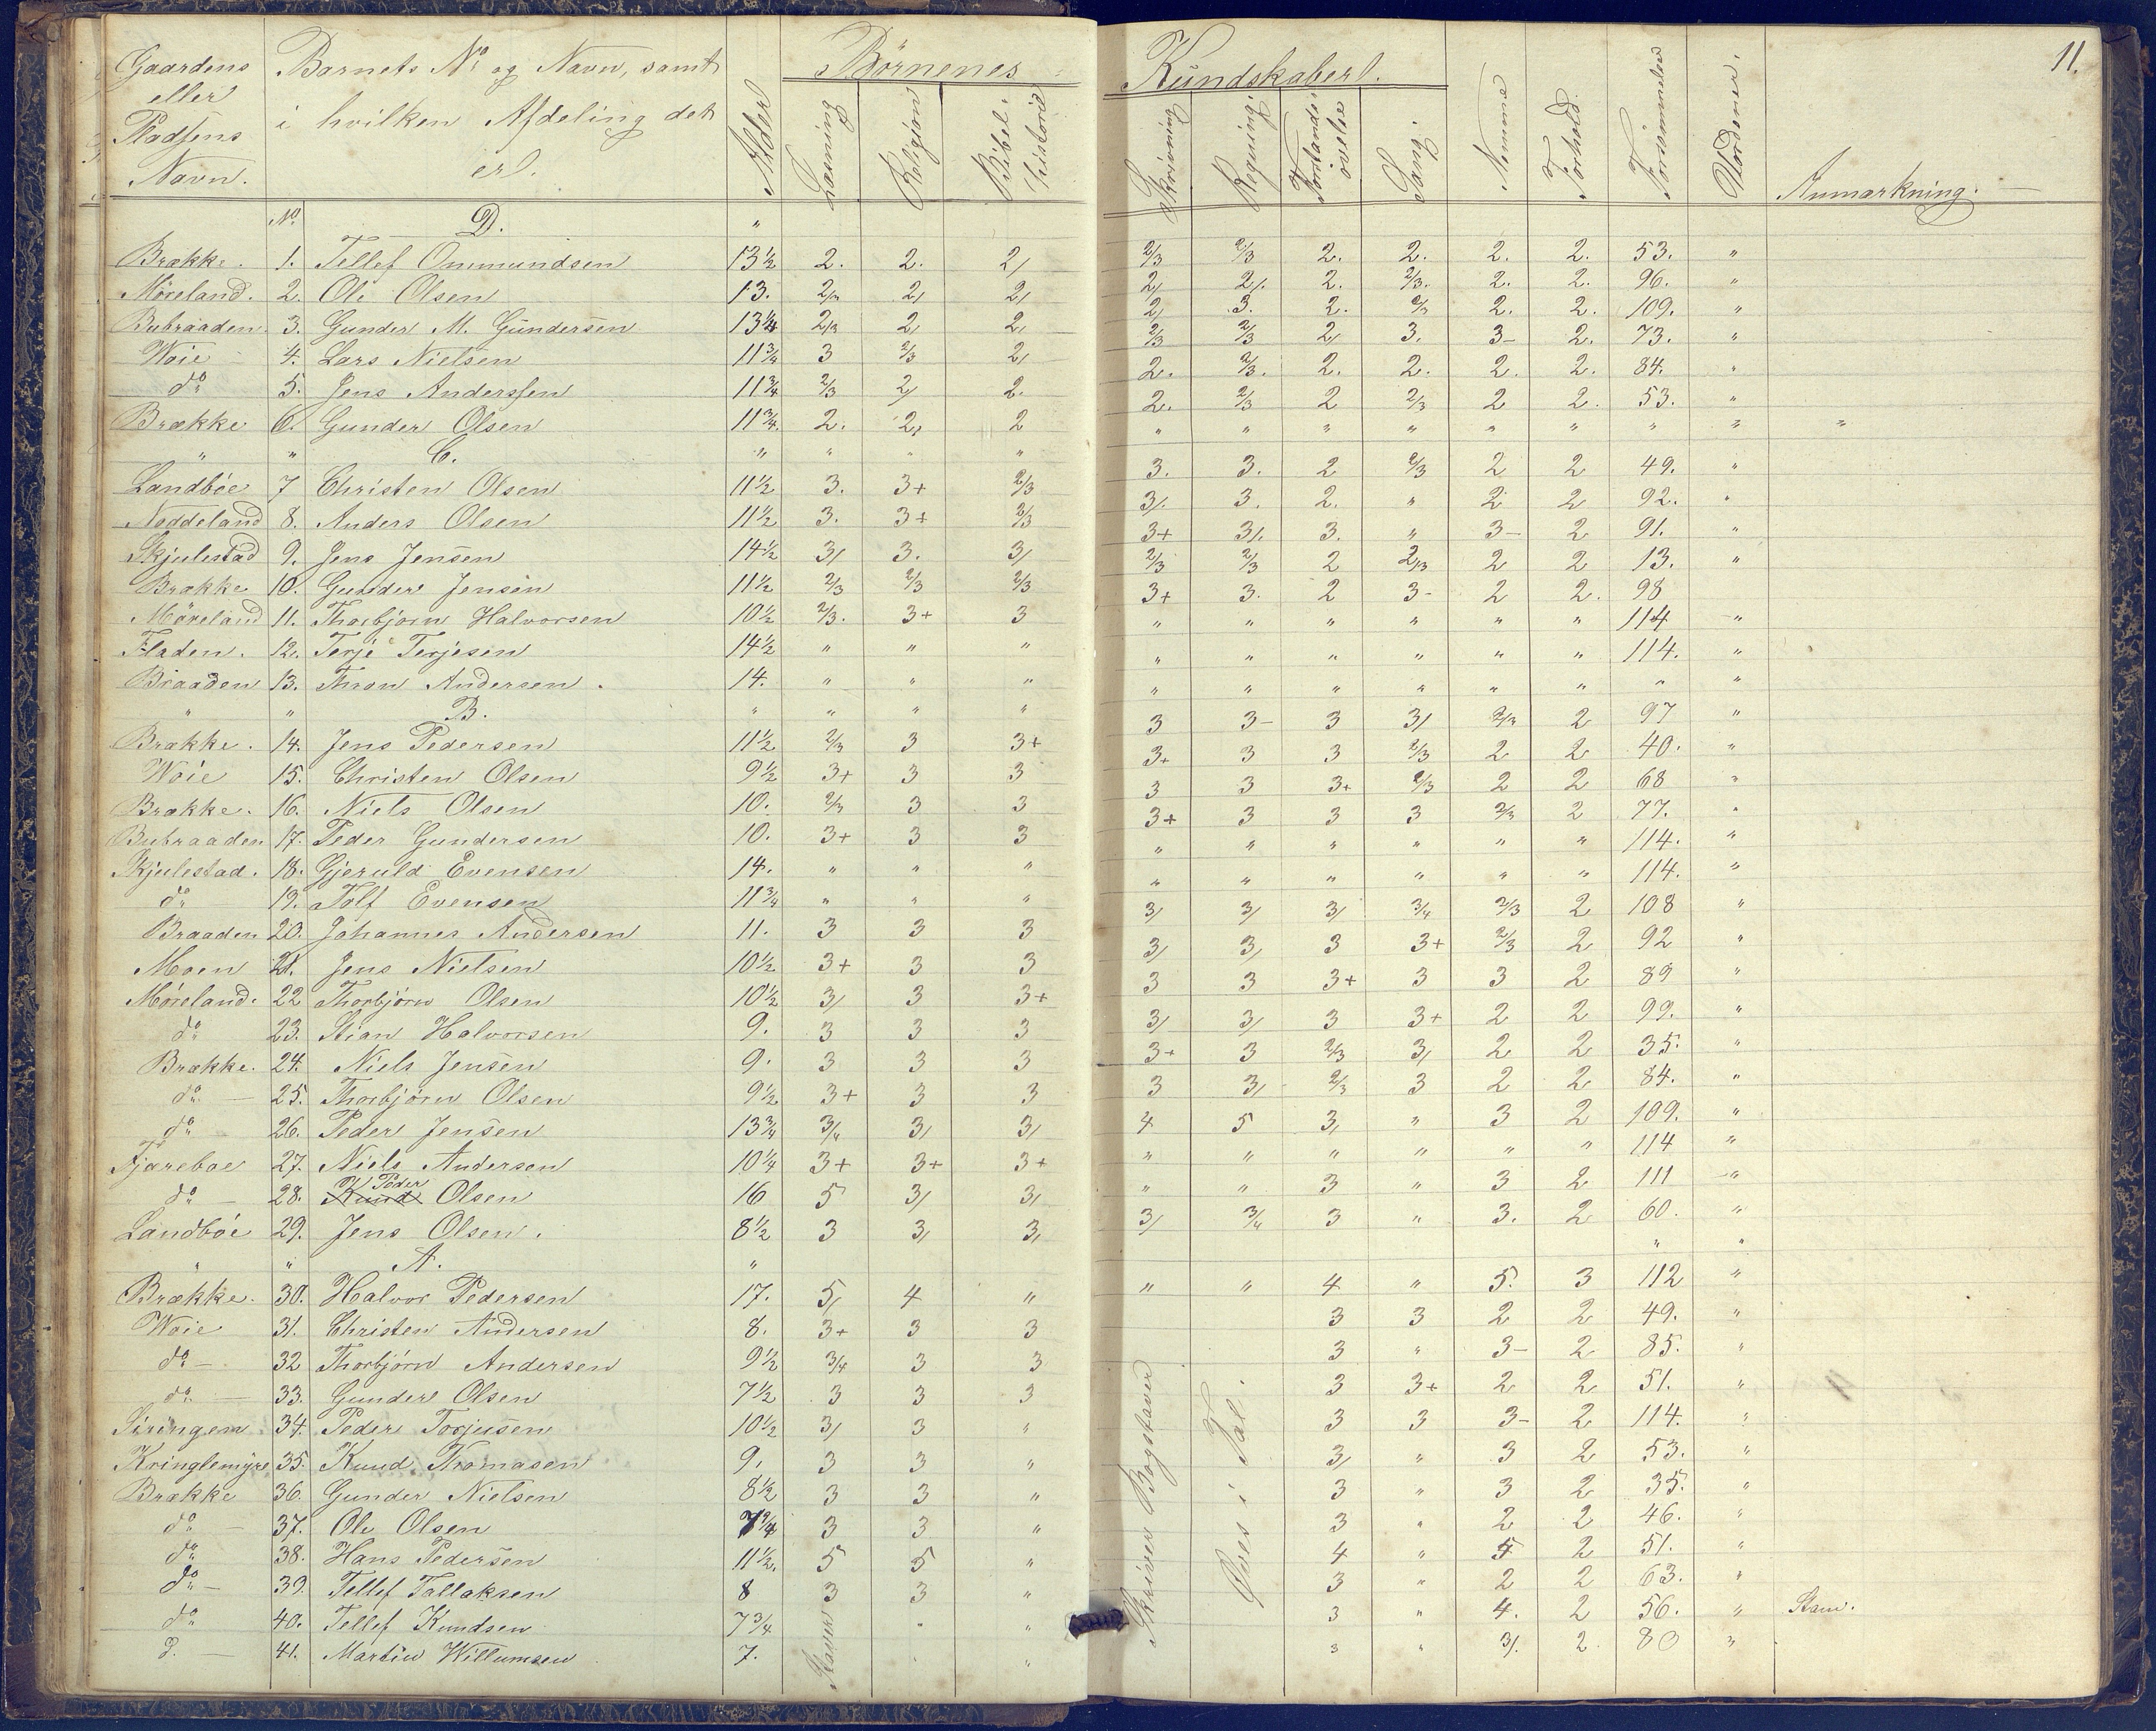 11.
Gaardens eller Pladsens Navn. | Barnets No og Navn, samt i hvilken Afdeling det er. | Alder | Børnenes Kundskaber. | Læsning | Religjon | Bibel-historie | Skrivning | Regning. | Forstands-øvelse | Sang. | Nemme | Forhold. | Forsømmelse | Vurderer. | Anmærkning.
No | D. | "
Brække. | 1. | Tellef Ommundsen | 13 1/2 | 2. | 2. | 2/ | 2/3 | 2/3 | 2. | 2. | 2. | 2. | 53. | "
Møreland. | 2. | Ole Olsen | 13. | 2/3 | 2/ | 2/ | 2/ | 2/. | 2. | 2/3. | 2. | 2. | 96. | "
Bubraaden | 3. | Gunder M. Gundersen | 13 1/4 | 2/3 | 2/ | 2/ | 2/ | 3. | 2. | 2/3 | 2. | 2. | 109. | "
Woie | 4. | Lars Nielsen | 11 3/4 | 3 | 2/3 | 2/ | 2/3 | 2/3 | 2/ | 3. | 3- | 2. | 73. | "
do | 5. | Jens Anderssen | 11 3/4 | 2/3 | 2/ | 2. | 2. | 2/3. | 2. | 2. | 2. | 2. | 84. | "
Brække | 6. | Gunder Olsen | 11 3/4. | 2. | 2/ | 2 | 2. | 2/3 | 2 | 2/3 | 2 | 2. | 53. | "
" | " | C. | " | " | " | " | " | " | " | " | " | " | " | " | "
Landbøe | 7 | Christen Olsen | 11 1/2 | 3. | 3+ | 2/3 | 3. | 3. | 2 | 2/3 | 2 | 2 | 49. | "
Noddeland | 8. | Anders Olsen | 11 1/2 | 3. | 3+ | 2/3 | 3/. | 3. | 2. | " | 2 | 2 | 92. | "
Skjulestad | 9. | Jens Jensen | 14 1/2 | 3/ | 3. | 3/ | 3+ | 3/. | 3. | " | 3- | 2 | 91. | "
Brække | 10. | Gunder Jensen | 11 1/2 | 2/3 | 2/3 | 2/3 | 2/3 | 2/3 | 2 | 2/3 | 2 | 2 | 13. | "
Møreland | 11. | Thorbjørn Halvorsen | 10 1/2 | 2/3. | 3+ | 3 | 3+ | 3. | 2 | 3- | 2 | 2. | 98
Fladen. | 12. | Terje Terjesen | 14 1/2 | " | " | " | " | " | " | " | " | " | 114 | "
Braaden | 13. | Thron Andersen. | 14. | " | " | " | " | " | " | " | " | " | 114. | "
" | " | B. | " | " | " | " | " | " | " | " | " | " | " | "
Brække. | 14. | Jens Pedersen | 11 1/2 | 2/3 | 3 | 3+ | 3 | 3- | 3 | 3/ | 2/3 | 2 | 97 | "
Woie | 15. | Christen Olsen | 9 1/2 | 3+ | 3 | 3 | 3+ | 3 | 3 | 2/3 | 2 | 2 | 40. | "
Brække. | 16. | Niels Olsen | 10. | 2/3 | 3 | 3 | 3 | 3 | 3+ | 2/3 | 2 | 2 | 68 | "
Bubraaden | 17. | Peder Gundersen | 10. | 3+ | 3 | 3 | 3+ | 3 | 3 | 3 | 2/3 | 2 | 77. | "
Skjulestad. | 18. | Gjeruld Evensen | 14. | " | " | " | " | " | " | " | " | " | 114. | "
do | 19. | Tolf Evensen | 11 3/4 | " | " | " | " | " | " | " | " | " | 114. | "
Braaden | 20. | Johannes Andersen | 11. | 3 | 3 | 3 | 3/ | 3/ | 3/ | 3/4 | 2/3 | 2 | 108 | "
Moen | 21. | Jens Nielsen | 10 1/2 | 3+ | 3 | 3 | 3/ | 3/ | 3 | 3+ | 2/3 | 2 | 92 | "
Møreland. | 22 | Thorbjørn Olsen | 10 1/2 | 3/ | 3 | 3+ | 3 | 3 | 3+ | 3 | 3 | 2 | 89 | "
do | 23. | Stian Halvorsen | 9. | 3 | 3 | 3 | 3/ | 3/ | 3 | 3+ | 2 | 2 | 99. | "
Brække. | 24. | Niels Jensen | 9. | 3 | 3 | 3 | 3+ | 3 | 2/3 | 3/ | 2 | 2 | 35. | "
do — | 25. | Thorbjørn Olsen | 9 1/2 | 3+ | 3 | 3 | 3 | 3/ | 2/3 | 3 | 2 | 2 | 84. | "
do — | 26. | Peder Jensen | 13 3/4 | 3/4 | 3/ | 3/ | 4 | 5 | 3/ | " | 3 | 2 | 109. | "
Tjæreboe | 27. | Niels Andersen | 10 1/4 | 3+ | 3+ | 3+ | " | " | " | " | " | " | 114 | "
do — | 28. | Knud Peder Olsen | 16 | 5 | 3/ | 3/ | " | " | 3 | " | 3 | 2 | 111 | "
Landbøe | 29. | Jens Olsen. | 8 1/2 | 3 | 3/ | 3/ | 3/ | 3/4 | 3 | " | 3. | 2 | 60. | "
" | " | A. | " | " | "
Brække. | 30. | Halvor Pedersen | 17. | 5/ | 4 | " | " | " | 4 | " | 5. | 3 | 112 | "
Woie | 31. | Christen Andersen | 8. | 3+ | 3 | 3 | 3 | 3 | 2 | 2 | 49. | "
do — | 32 | Thorbjørn Andersen | 9 1/2 | 3/4 | 3 | 3 | 3 | " | 3- | 2 | 85. | "
do — | 33. | Gunder Olsen | 7 1/2 | 3 | 3 | 3 | 3 | 3+ | 2 | 2 | 51. | "
Siringen | 34. | Peder Torjusen | 10 1/2 | 3/ | 3 | " | 3 | 3 | 3- | 2 | 114. | "
Kringlemyre | 35. | Knud Thomasen | 9. | 3 | 3 | " | 3/ | " | 3 | 2 | 53. | "
Brække | 36. | Gunder Nielsen | 8 1/2 | 3 | 3 | " | 3 | " | 3 | 2 | 35. | "
do — | 37. | Ole Olsen | 7 3/4 | 3 | 3 | " | 3 | " | 2 | 2 | 46. | "
do | 38. | Hans Pedersen | 11 1/2. | 5 | 5 | " | 4 | " | 5 | 2 | 51. | "
do — | 39. | Tellef Tallaksen | 8 | 3 | 3 | " | 3 | " | 2 | 2 | 63. | "
do | 40. | Tellef Knudsen | 7 3/4 | Staver | " | " | 3 | " | 4. | 2 | 56. | " | Stam.
d. — | 41. | Martin Willumsen | 7. | " | " | 3 | " | 3/. | 2 | 80 | "
Skriver Bogstaver
Øves i Tal.